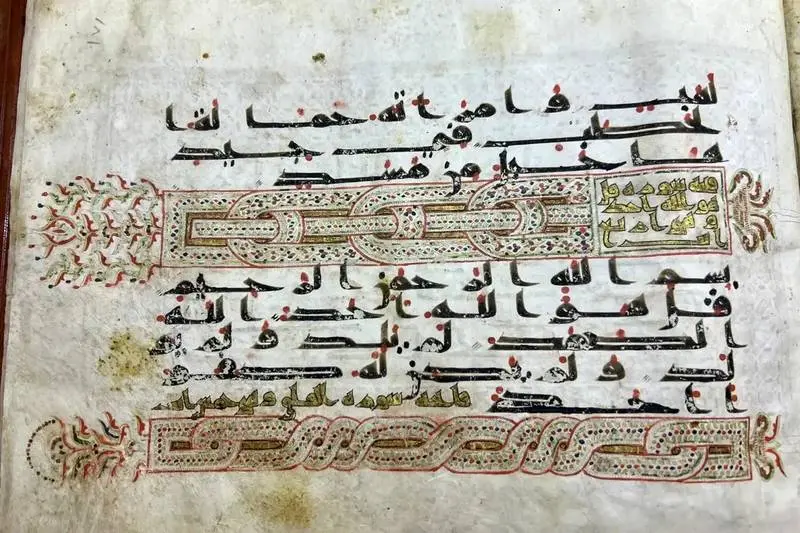 لهب وامراته حمالة ا
لحطب في جيد
ها حبل من مسد
هو الله احد
بسم الله الرحمن الرحيم
قل هو الله احد الله
الصمد لم يلد ولم يو
لد ولم يكن له كفو
ا احد سورة الفلق وهي خمس